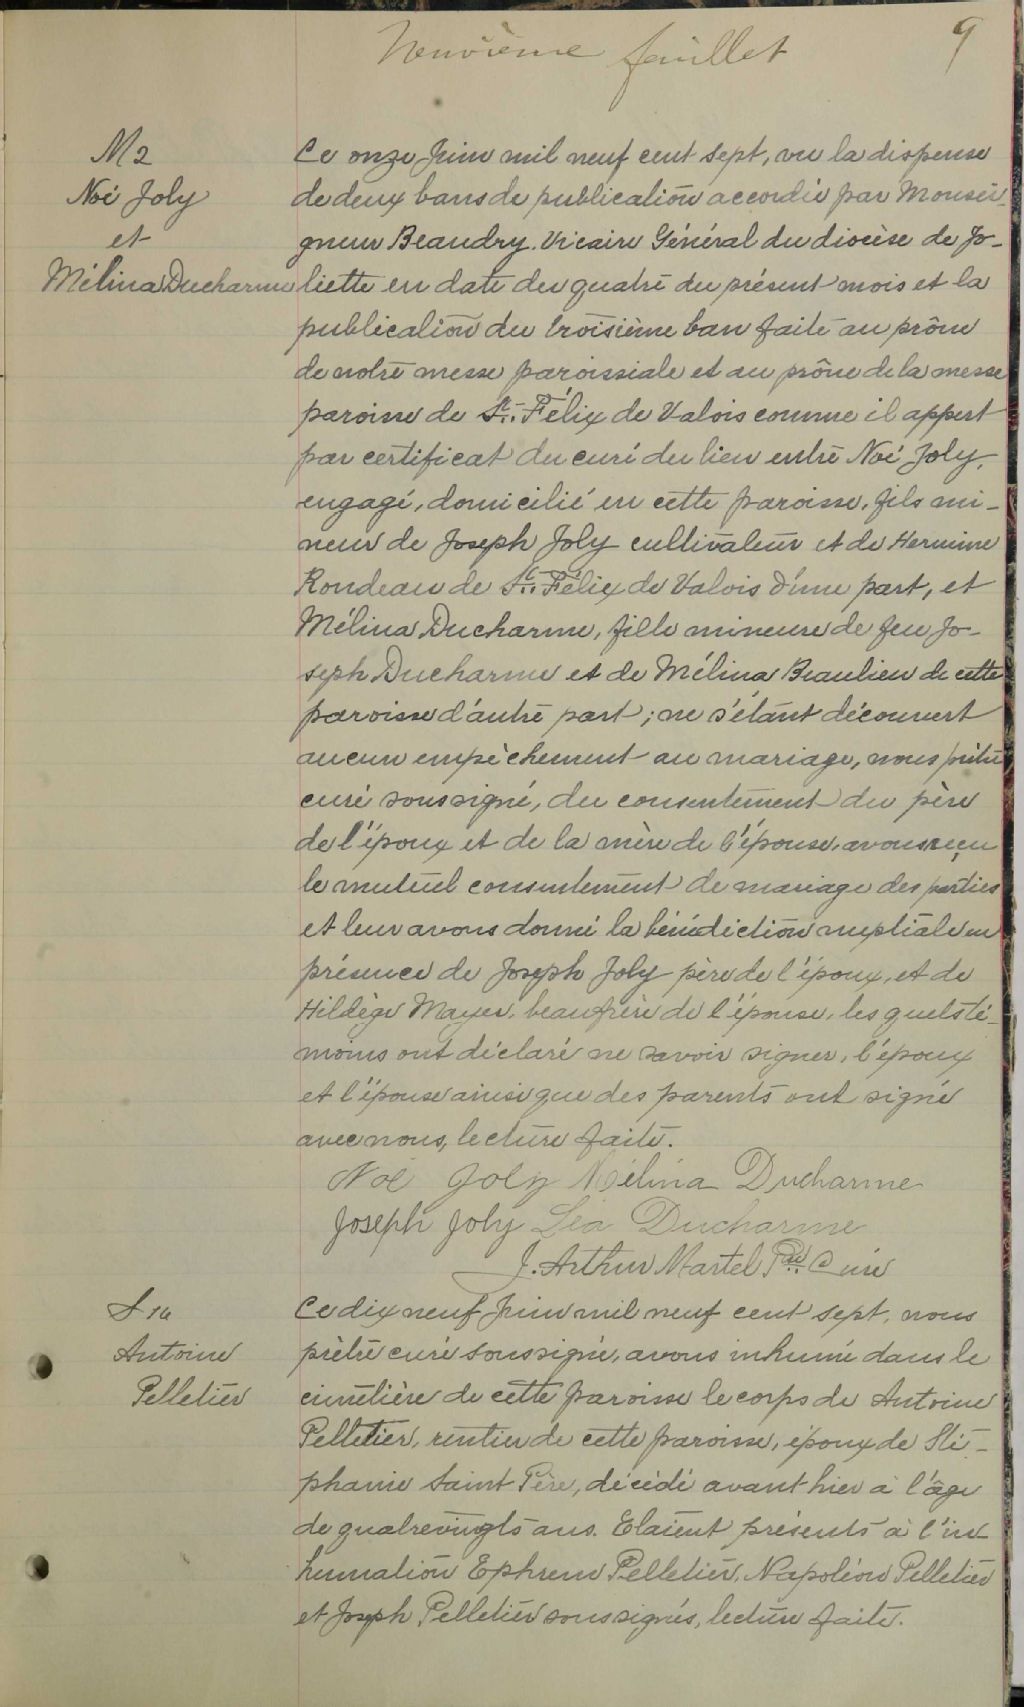 Neuvième feuillet
9
M2
Noé Joly
et
Mélina Ducharme
Ce onze Juin mil neuf cent sept, vu la dispense
de deux bans de publication accordée par Monsei-
gneur Beaudry. Vicaire Général du diocèse de Jo-
liette en date du quatre du présent mois et la
publication du troisième ban faite au prône
de notre messe paroissiale et au prône de la messe
paroisse de St. Félix de Valois comme il appert
par certificat du curé du lieu entre Noé Joly,
engagé, domicilié en cette paroisse, fils mi-
neur de Joseph Joly cultivateur et de Hermine
Rondeau de St. Félix de Valois d'une part, et
Mélina Ducharme, fille mineure de feu Jo-
seph Ducharme et de Mélina Beaulieu de cette
paroisse d'autre part; ne s'étant découvert
aucun empêchement au mariage, nous prêtre
curé soussigné, du consentement du père
de l'époux et de la mère de l'épouse, avons reçu
le mutuel consentement de mariage des parties
et leur avons donné la bénédiction nuptiale en
présence de Joseph Joly père de l'époux, et de
Hildège Mayer, beaufrère de l'épouse, les quels té-
moins ont déclaré ne savoir signer, l'époux
et l'épouse ainsi que des parents ont signé
avec nous, lecture faite.
Noé Joly Mélina Ducharme
Joseph Joly Léa Ducharme
J. Arthur Martel Ptre Curé
S 14
Antoine
Pelletier
Ce dix neuf Juin mil neuf cent sept, nous
prêtre curé soussigné, avons inhumé dans le
cimetière de cette paroisse le corps de Antoine
Pelletier, rentier de cette paroisse, époux de Sté-
phanie Saint Père, décédé avant hier à l'âge
de quatrevingts ans. Etaient présents à l'in-
humation Ephrem Pelletier, Napoléon Pelletier
et Joseph Pelletier soussignés, lecture faite.